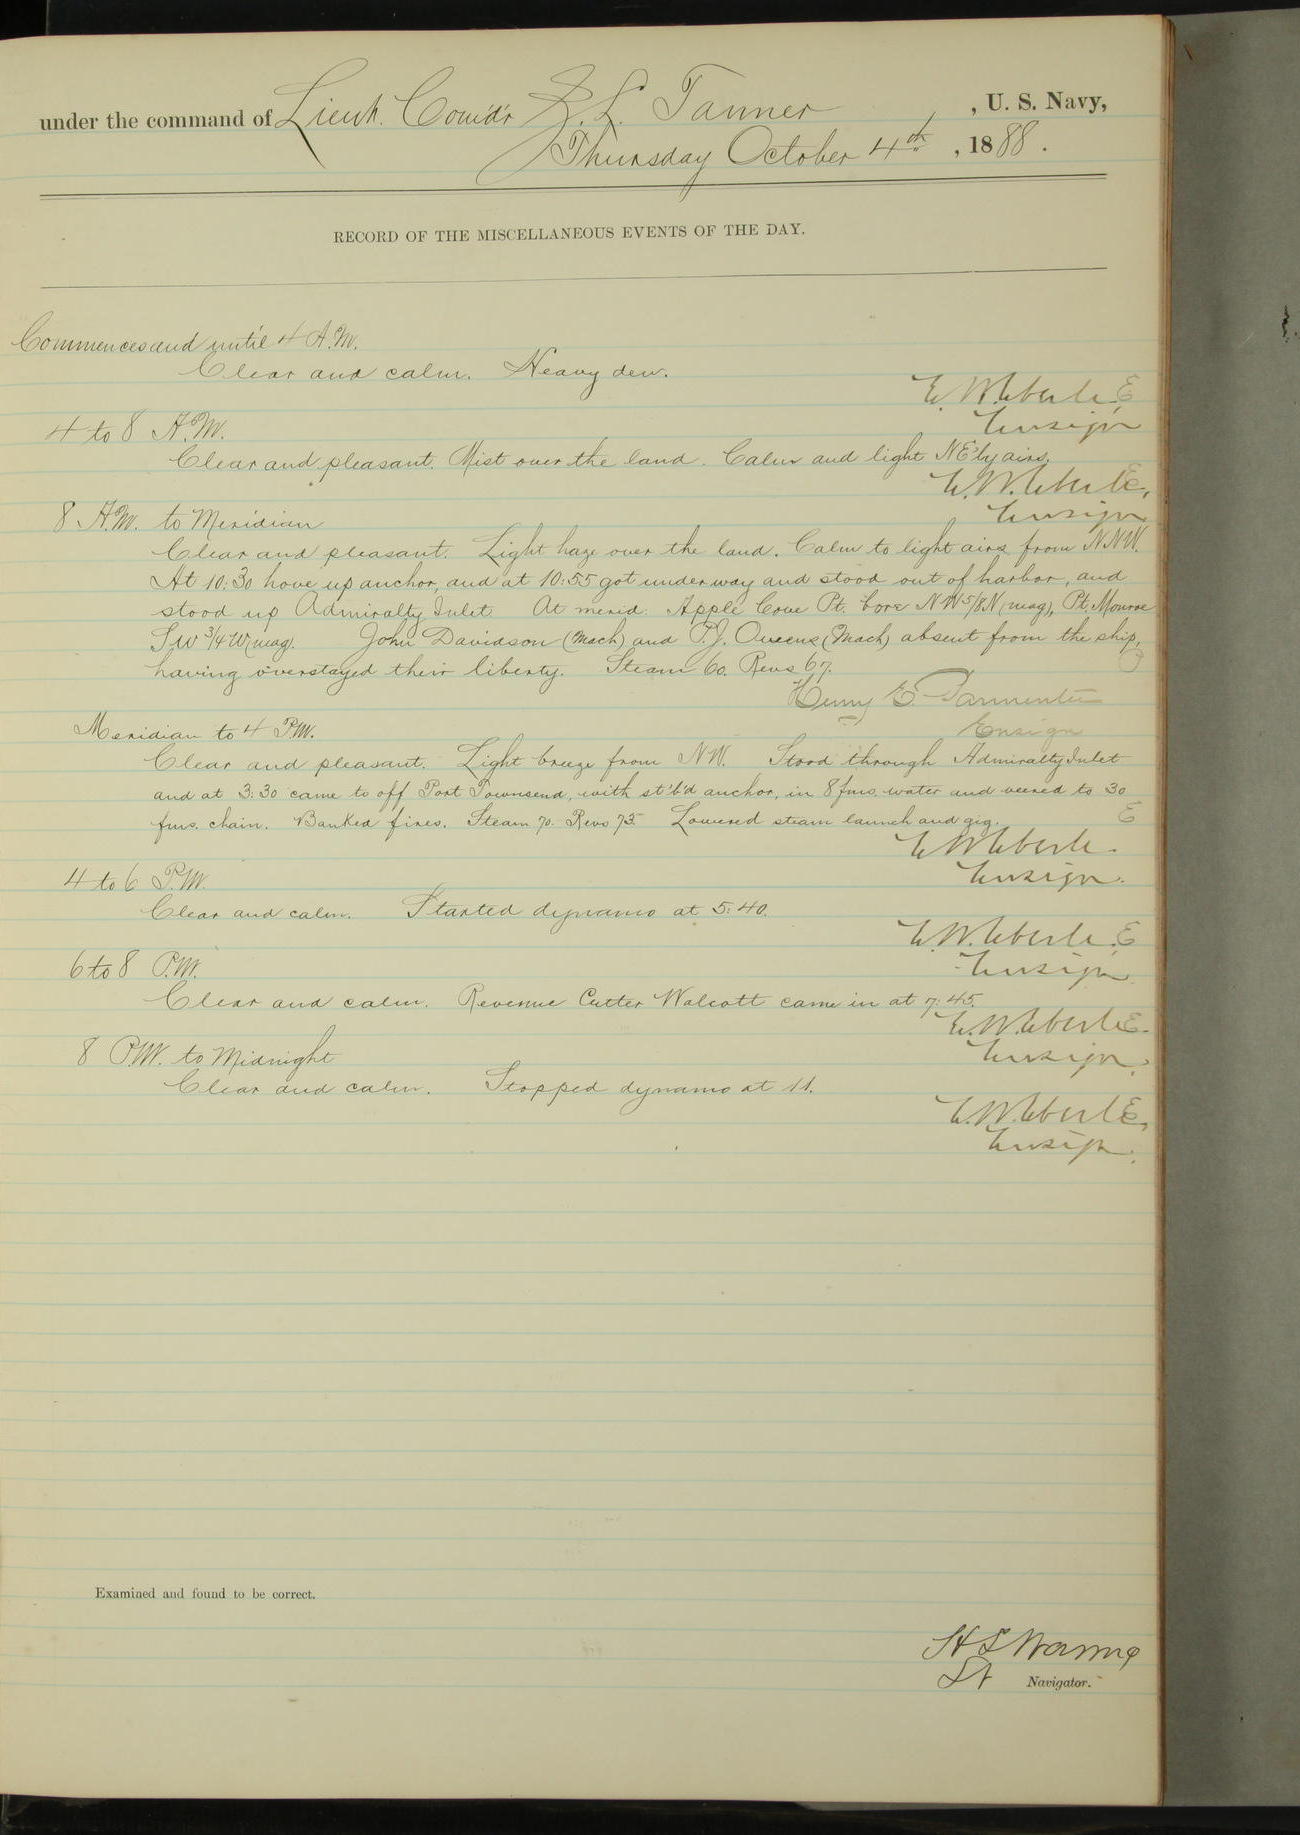 under the command of Lieut. Comd'r Z. L. Tanner , U. S. Navy,
Thursday October 4th , 1888 .
RECORD OF THE MISCELLANEOUS EVENTS OF THE DAY.
Commences and until 4 A.M.
Clear and calm. Heavy dew.
E. W. Eberle E
Ensign
4 to 8 A.M.
Clear and pleasant. Mist over the land. Calm and light NE'ly airs.
E. W. Eberle,
Ensign
8 A.M. to Meridian
Clear and pleasant. Light haze over the land. Calm to light airs from NNW.
At 10:30 hove up anchor, and at 10:55 got underway and stood out of harbor, and
stood up Admiralty Inlet. At merid. Apple Cove Pt. bore NW 5/8 N (mag), Pt. Monroe
SW 3/4 W (mag). John Davidson (Mach) and P.J. Owens (Mach) absent from the ship,
having overstayed their liberty. Steam 60. Revs 67.
Henry E. Parmenter
Ensign
Meridian to 4 P.M.
Clear and pleasant. Light breeze from NW. Stood through Admiralty Inlet
and at 3:30 came to off Port Townsend, with st'b'd anchor, in 8 fms. water and veered to 30
fms. chain. Banked fires. Steam 70. Revs 75. Lowered steam launch and gig. E
E W Eberle.
Ensign.
4 to 6 P.M.
Clear and calm. Started dynamo at 5:40.
E. W. Eberle. E
Ensign
6 to 8 P.M.
Clear and calm. Revenue Cutter Wolcott came in at 7:45.
E. W. Eberle E.
Ensign.
8 P.M. to Midnight
Clear and calm. Stopped dynamo at 11.
E. W. Eberle,
Ensign.
Examined and found to be correct.
H S
Lt Navigator.